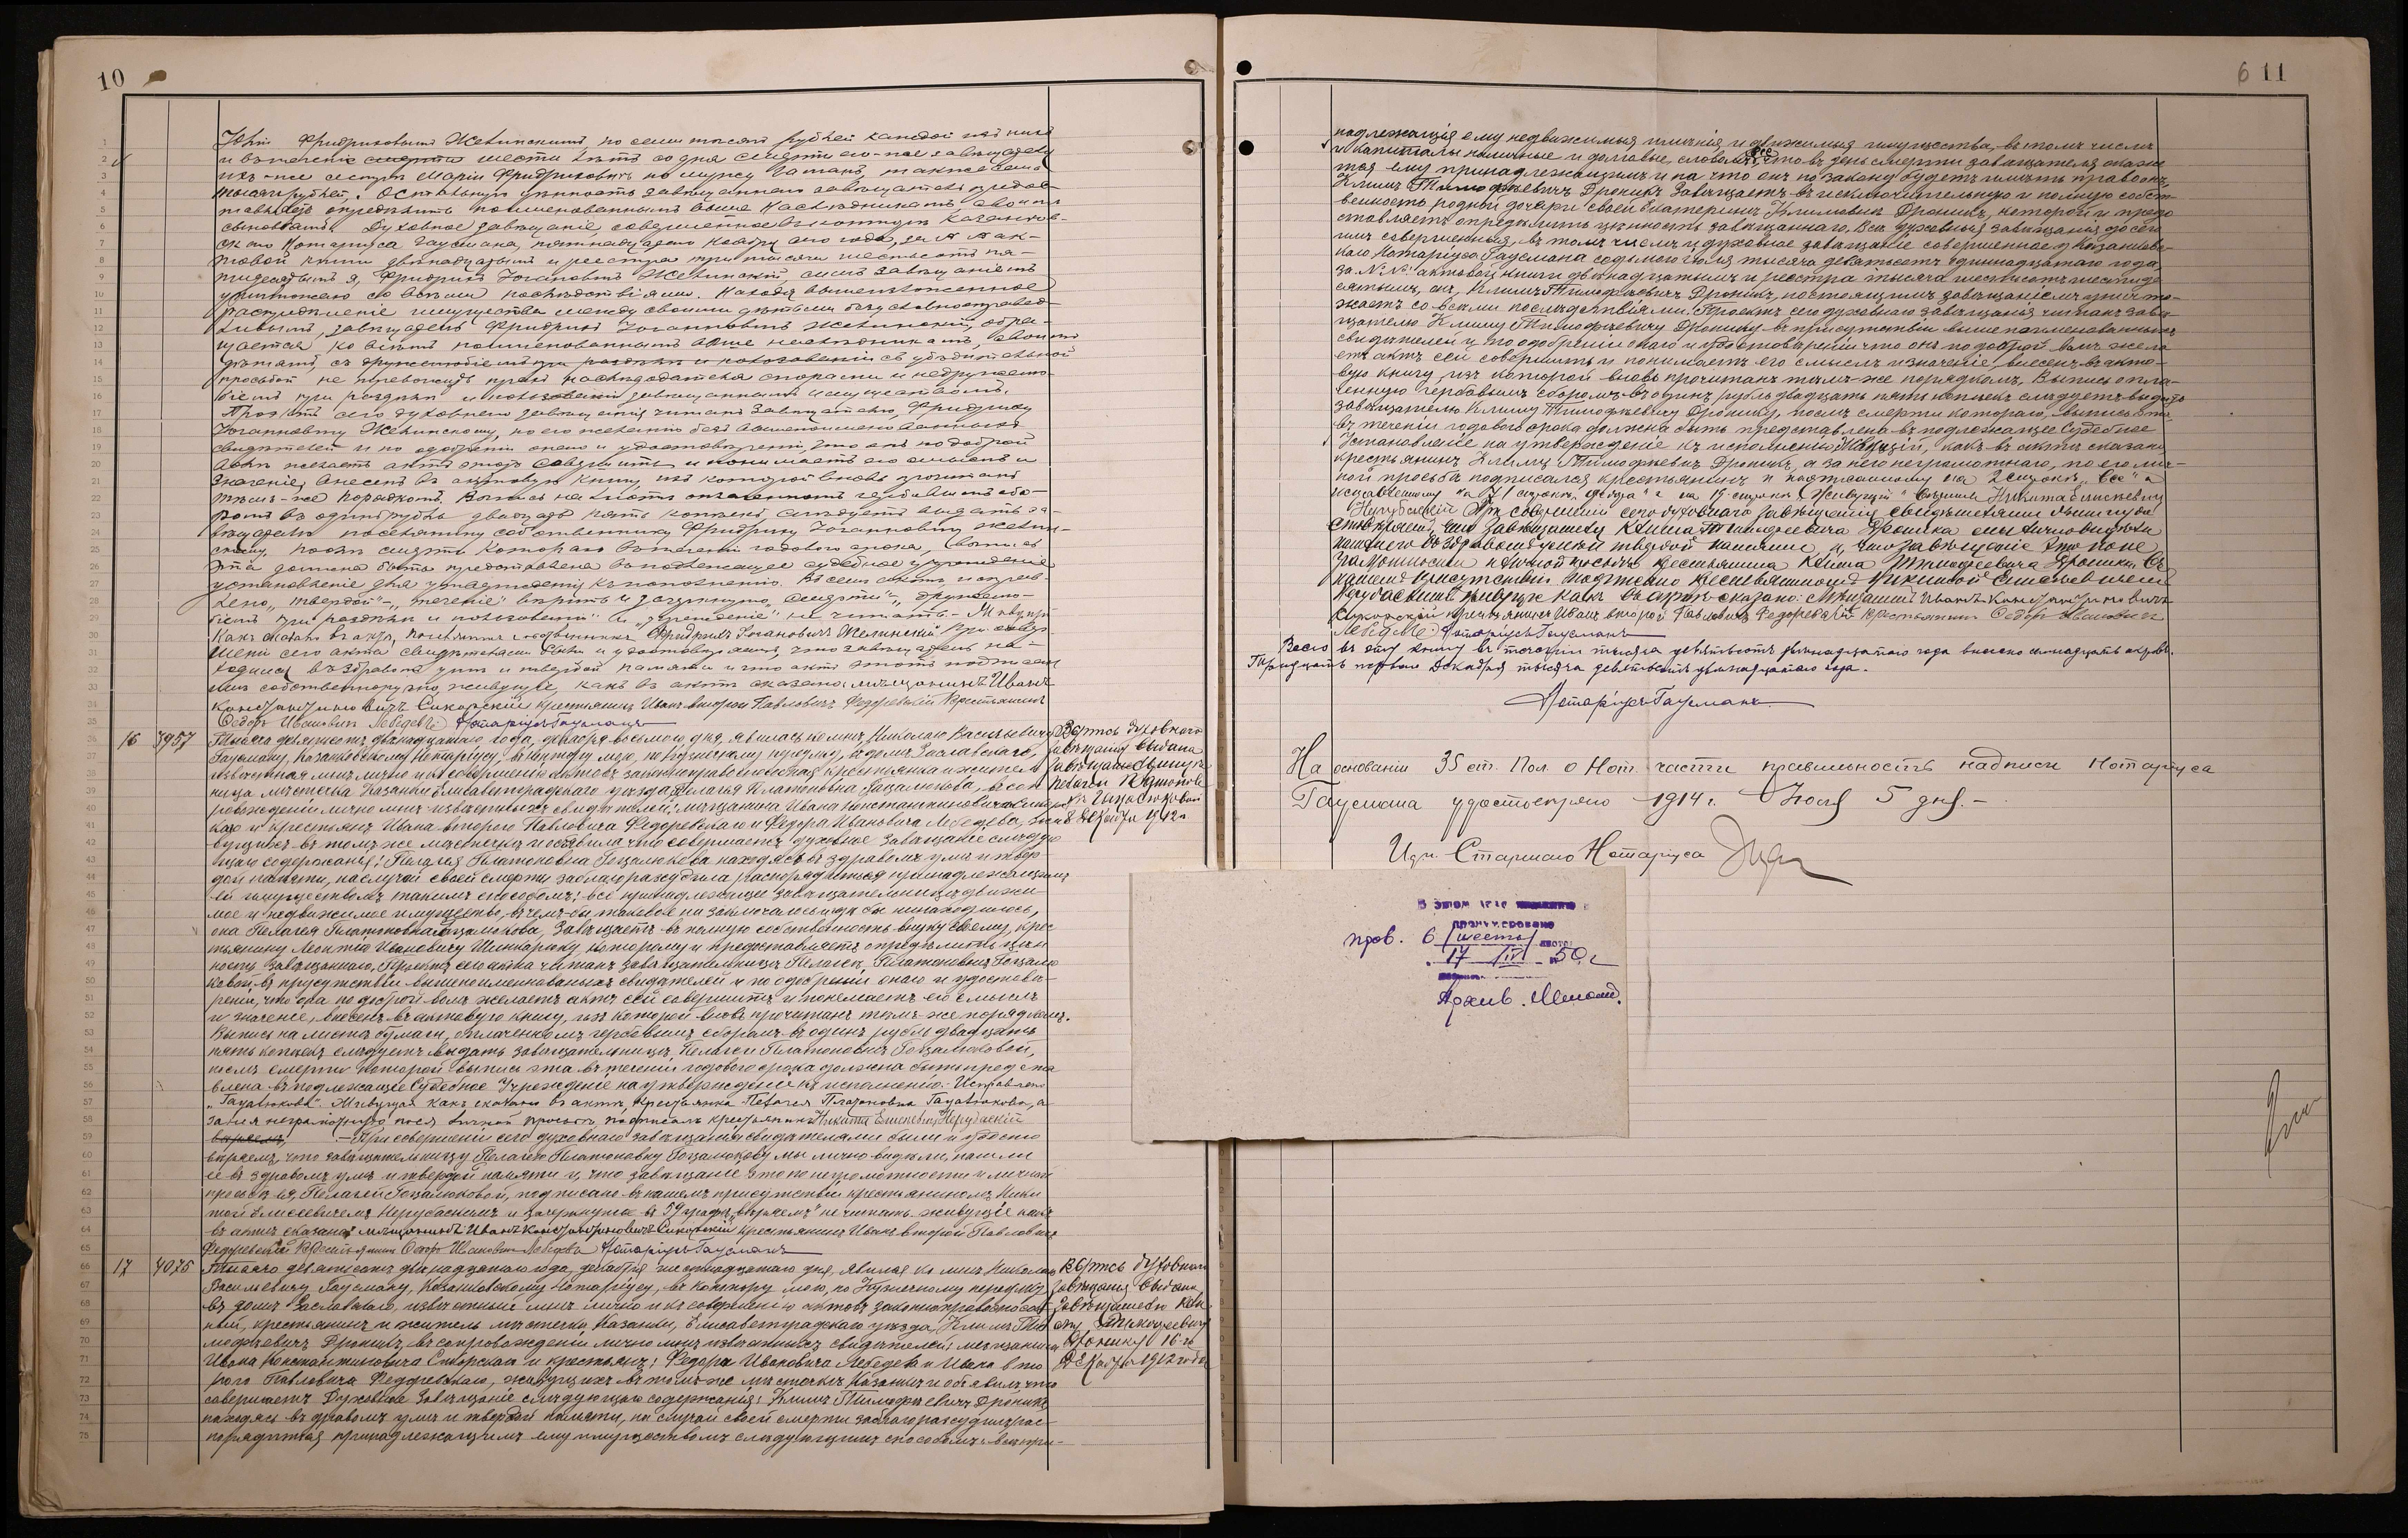 10
Фридриховымъ Желинскимъ, по семи тысячъ рублей каждой изъ нихъ
и въ теченіе смерти шести лѣтъ со дня смерти его завѣщателя
Маріи Фридриховнѣ по мужу Гатанъ, также семь
тысячъ рублей. Остальную цѣнность завѣщаннаго завѣщатель предос-
тавляетъ опредѣлить поименованнымъ выше наслѣдникамъ своимъ
сыновьямъ. Духовное завѣщаніе, совершенное въ конторѣ Казанков-
скаго Нотаріуса Гаусмана, пятнадцатаго Ноября сего года, за № ак-
товой книги двѣнадцатымъ и реестра три тысячи шестьсотъ пя-
тидесятымъ я, Фридрихъ Іогановичъ Желинскій симъ завѣщаніемъ
уничтожаю со всѣми послѣдствіями. Находя вышеизложенное
распредѣленіе имущества между своими дѣтьми безусловно справед-
ливымъ, завѣщатель Фридрихъ Іоганновичъ Желинскій, обра-
щается ко всѣмъ поименованнымъ выше наслѣдникамъ, своимъ
дѣтямъ, съ дружелюбіемъ при раздѣлѣ и пользованіи съ убѣдительной
просьбой не тревожить прахъ наслѣдодателя спорами и недружелю-
біемъ при раздѣлѣ и пользованіи завѣщаннымъ имуществомъ.
Проектъ сего духовнаго завѣщанія читанъ завѣщателю Фридриху
Іоганновичу Желинскому, по его желанію безъ вышепоименованныхъ
свидѣтелей и по одобреніи онаго и удостовѣреніи, что онъ по доброй
волѣ желаетъ актъ этотъ совершить и понимаетъ его смыслъ и
значеніе, внесенъ въ актовую книгу, изъ которой вновь прочитанъ
тѣмъ-же порядкомъ. Выпись на листѣ оплаченномъ гербовымъ сбо-
ромъ въ одинъ рубль двадцать пять копѣекъ слѣдуетъ выдать за-
вѣщателю поселянину собственнику Фридриху Іоганновичу Желин-
скому, послѣ смерти котораго въ теченіи годового срока, выпись
эта должна быть представлена въ подлежащее судебное учрежденіе
установленіе для утвержденія къ исполненію. Въ семъ актѣ исправ-
лено „твердой“ — „теченіе“ вѣрить и зачеркнуто „смерти“ — „дружелю-
біемъ при раздѣлѣ и пользованіи“ и „учрежденіе“ не читать. — Живущій
какъ сказано въ актѣ, поселянинъ собственникъ Фридрихъ Іогановичъ Желинскій. При совер-
шеніи сего акта свидѣтелями были и удостовѣряемъ, что завѣщатель на-
ходился въ здравомъ умѣ и твердой памяти и что актъ этотъ подписанъ
имъ собственноручно, живущіе, какъ въ актѣ сказано: мѣщанинъ Иванъ
Константиновичъ Сикорскій крестьянинъ Иванъ второй Павловичъ Федоревскій Крестьянинъ
Ѳедоръ Ивановичъ Лебедевъ Нотаріусъ Гаусманъ
16 3957 Тысяча девятьсотъ двѣнадцатаго года, декабря восьмого дня, явилась ко мнѣ, Николаю Васильевичу
Гаусману, Казанковскому Нотаріусу, въ контору мою, по Кузнечному переулку, въ домѣ Заславскаго,
извѣстная мнѣ лично и къ совершенію актовъ законноправоспособная крестьянка и житель-
ница мѣстечка Казанки Елисаветградскаго уѣзда, Пелагея Платоновна Гацалюкова, въ соп-
ровожденіи лично мнѣ извѣстныхъ свидѣтелей: мѣщанина Ивана Константиновича Сикорс-
каго и крестьянъ: Ивана второго Павловича Федоревскаго и Федора Ивановича Лебедева, жи-
вущихъ въ томъ же мѣстечкѣ и объявила что совершаетъ духовное завѣщаніе слѣдую-
щаго содержанія: Пелагея Платоновна Гацалюкова находясь въ здравомъ умѣ и твер-
дой памяти, на случай своей смерти заблагоразсудила распорядиться принадлежащимъ
ей имуществомъ такимъ способомъ: всѣ принадлежащее завѣщательницѣ движи-
мое и недвижимое имущество, въ чемъ-бы таковое ни заключалось и гдѣ бы ни находилось,
она Пелагея Платоновна Гацалюкова, завѣщаетъ въ полную собственность внуку своему, крес-
тьянину Леонтію Ивановичу Шинкарюку, которому и предоставляетъ опредѣлить цѣн-
ность завѣщаннаго. Проектъ сего акта читанъ завѣщательницѣ Пелагеѣ Платоновнѣ Гацалю-
ковой, въ присутствіи вышепоименованныхъ свидѣтелей и по одобреніи онаго и удостовѣ-
реніи, что она по доброй волѣ желаетъ актъ сей совершить и понимаетъ его смыслъ
и значеніе, внесенъ въ актовую книгу, изъ которой вновь прочитанъ тѣмъ-же порядкомъ.
Выпись на листѣ бумаги, оплаченномъ гербовымъ сборомъ въ одинъ рубль двадцать
пять копѣекъ слѣдуетъ выдать завѣщательницѣ, Пелагеи Платоновнѣ Гацалюковой,
послѣ смерти которой выпись эта въ теченіи годового срока должна быть предста-
влена въ подлежащее Судебное Учрежденіе на утвержденіе къ исполненію. Исправлено
„Гацалюкова“. Живущая какъ сказано въ актѣ, крестьянка Пелагея Платоновна Гацалюкова, а
за нея неграмотную по ея личной просьбѣ подписалъ крестьянинъ Никита Елисеевичъ Нерубаскій
— При совершеніи сего духовнаго завѣщанія свидѣтелями были и удосто-
вѣряемъ, что завѣщательницу Пелагею Платоновну Гацалюкову мы лично видѣли, нашли
её въ здравомъ умѣ и твердой памяти и, что завѣщаніе это по неграмотности и личной
просьбѣ ея, Пелагеи Гацалюковой, подписано въ нашемъ присутствіи крестьяниномъ Ники-
той Елисеевичемъ Нерубаскимъ и зачеркнутое въ 59 графѣ „вѣряемъ“ не читать. живущіе какъ
въ актѣ сказано: мѣщанинъ Иванъ Константиновичъ Сикорскій крестьянинъ Иванъ второй Павловичъ
Федоревскій Крестьянинъ Ѳедоръ Ивановичъ Лебедевъ Нотаріусъ Гаусманъ
Выпись духовнаго
завѣщанія выдана
завѣщательницѣ
Пелагеи Платонов-
нѣ Гацалюковой
8 Декабря 1912 г.
17 4075 Тысяча девятьсотъ двѣнадцатаго года, декабря шестнадцатаго дня, явился ко мнѣ Николаю
Васильевичу Гаусману, Казанковскому Нотаріусу, въ контору мою, по Кузнечному переулку
въ домѣ Заславскаго, извѣстный мнѣ лично и къ совершенію актовъ законноправоспособ-
ный, крестьянинъ и житель мѣстечка Казанки, Елисаветградскаго уѣзда, Климъ Ти-
мофѣевичъ Дроникъ, въ сопровожденіи лично мнѣ извѣстныхъ свидѣтелей: мѣщанина
Ивана Константиновича Сикорскаго и крестьянъ: Федора Ивановича Лебедева и Ивана вто-
рого Павловича Федоревскаго, живущихъ въ томъ же мѣстечкѣ Казанкѣ и объявилъ, что
совершаетъ Духовное Завѣщаніе слѣдующаго содержанія: Климъ Тимофѣевичъ Дроникъ
находясь въ здравомъ умѣ и твердой памяти, на случай своей смерти заблагоразсудилъ рас-
порядиться принадлежащимъ ему имуществомъ слѣдующимъ способомъ: всѣ при-
Выпись духовнаго
завѣщанія выдана
завѣщателю Кли-
му Тимофеевичу
Дронику 16-го
Декабря 1912 года
6 11
надлежащія ему недвижимыя имѣнія и движимыя имущества, въ томъ числѣ
и капиталы наличные и долговые, словомъ всё что въ день смерти завѣщателя окаже-
тся ему принадлежащимъ и на что онъ по закону будетъ имѣть право онъ,
Климъ Тимофѣевичъ Дроникъ завѣщаетъ въ исключительную и полную собст-
венность родной дочери своей Екатеринѣ Климовнѣ Дроникъ, которой и предо-
ставляетъ опредѣлить цѣнность завѣщаннаго. Всѣ духовныя завѣщанія до сего
имъ совершенныя, въ томъ числѣ и духовное завѣщаніе совершенное у Казанковс-
каго Нотаріуса Гаусмана седьмого іюля тысяча девятьсотъ одиннадцатаго года
за №№ актовой книги двѣнадцатымъ и реестра тысяча шестьсотъ шестиде-
сятымъ, онъ, Климъ Тимофѣевичъ Дроникъ, настоящимъ завѣщаніемъ уничто-
жаетъ со всѣми послѣдствіями. Проектъ сего духовнаго завѣщанія читанъ завѣ-
щателю Климу Тимофѣевичу Дронику въ присутствіи вышепоименованныхъ
свидѣтелей и по одобреніи онаго и удостовѣреніи что онъ по доброй волѣ жела-
етъ актъ сей совершить и понимаетъ его смыслъ и значеніе, внесенъ въ акто-
вую книгу, изъ которой вновь прочитанъ тѣмъ-же порядкомъ. Выпись опла-
ченную гербовымъ сборомъ въ одинъ рубль двадцать пять копѣекъ слѣдуетъ выдать
завѣщателю Климу Тимофѣевичу Дронику, послѣ смерти котораго, выпись эта
въ теченіи годового срока должна быть представлена въ подлежащее Судебное
Установленіе на утвержденіе къ исполненію. Живущій, какъ въ актѣ сказано
крестьянинъ Климъ Тимофѣевичъ Дроникъ, а за него неграмотнаго, по его лич-
ной просьбѣ подписался крестьянинъ
Нерубаскій При совершеніи сего духовнаго завѣщанія свидѣтелями были и удо-
стовѣряемъ, что завѣщателя Клима Тимофеевича Дроника мы лично видѣли
нашли его въ здравомъ умѣ и твердой памяти и, что завѣщаніе это по не
грамотности и личной просьбѣ крестьянина Клима Тимофеевича Дроника въ
нашемъ присутствіи подписано крестьяниномъ Никитой Елисеевичемъ
Нерубаскимъ живущіе какъ въ актѣ сказано: Мѣщанинъ Иванъ Константиновичъ
Сикорскій крестьянинъ Иванъ второй Павловичъ Федоревскій Крестьянинъ Ѳедоръ Ивановичъ
Лебедевъ Нотаріусъ Гаусманъ
Всего въ эту книгу въ теченіи тысяча девятьсотъ двѣнадцатаго года внесено семнадцать актовъ.
Тридцать перваго Декабря тысяча девятьсотъ двѣнадцатаго года.
Нотаріусъ Гаусманъ.
На основаніи 35 ст. Пол. о Нот. части правильность надписи Нотаріуса
Гаусмана удостовѣряю 1914 г. Іюля 5 дня. —
И. д. Старшаго Нотаріуса
В этом деле
пронумеровано
пров. 6 /шесть/ листов
17 IV 50 г.
Архив.